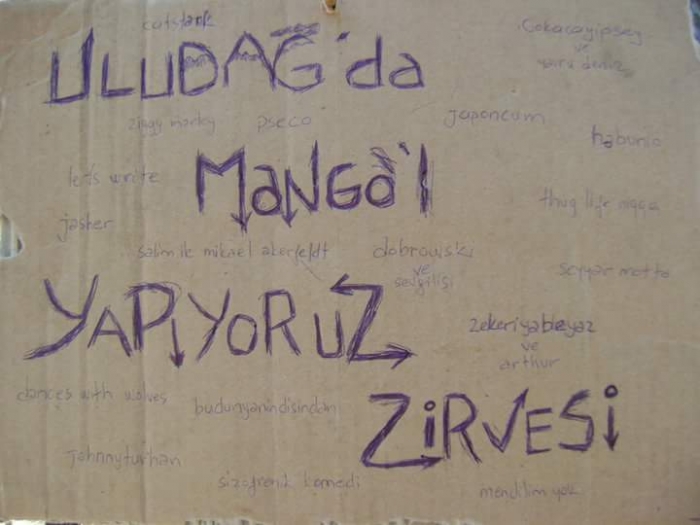 catstark
ULUDAĞ'da
ziggy marley pseco japoncam
habunio
let's write MaNGa'I
thug life nigga
jasher
salim ile mikael akerfeldt dobrowski
ve
sevgilisi
seyyar motto
YAPIYORUZ
zekeriyabeyaz
ve
arthur
dances with wolves budunyanindisindan
ZiRVESi
johnnyturhan
sizofrenik komedi mendilim yok